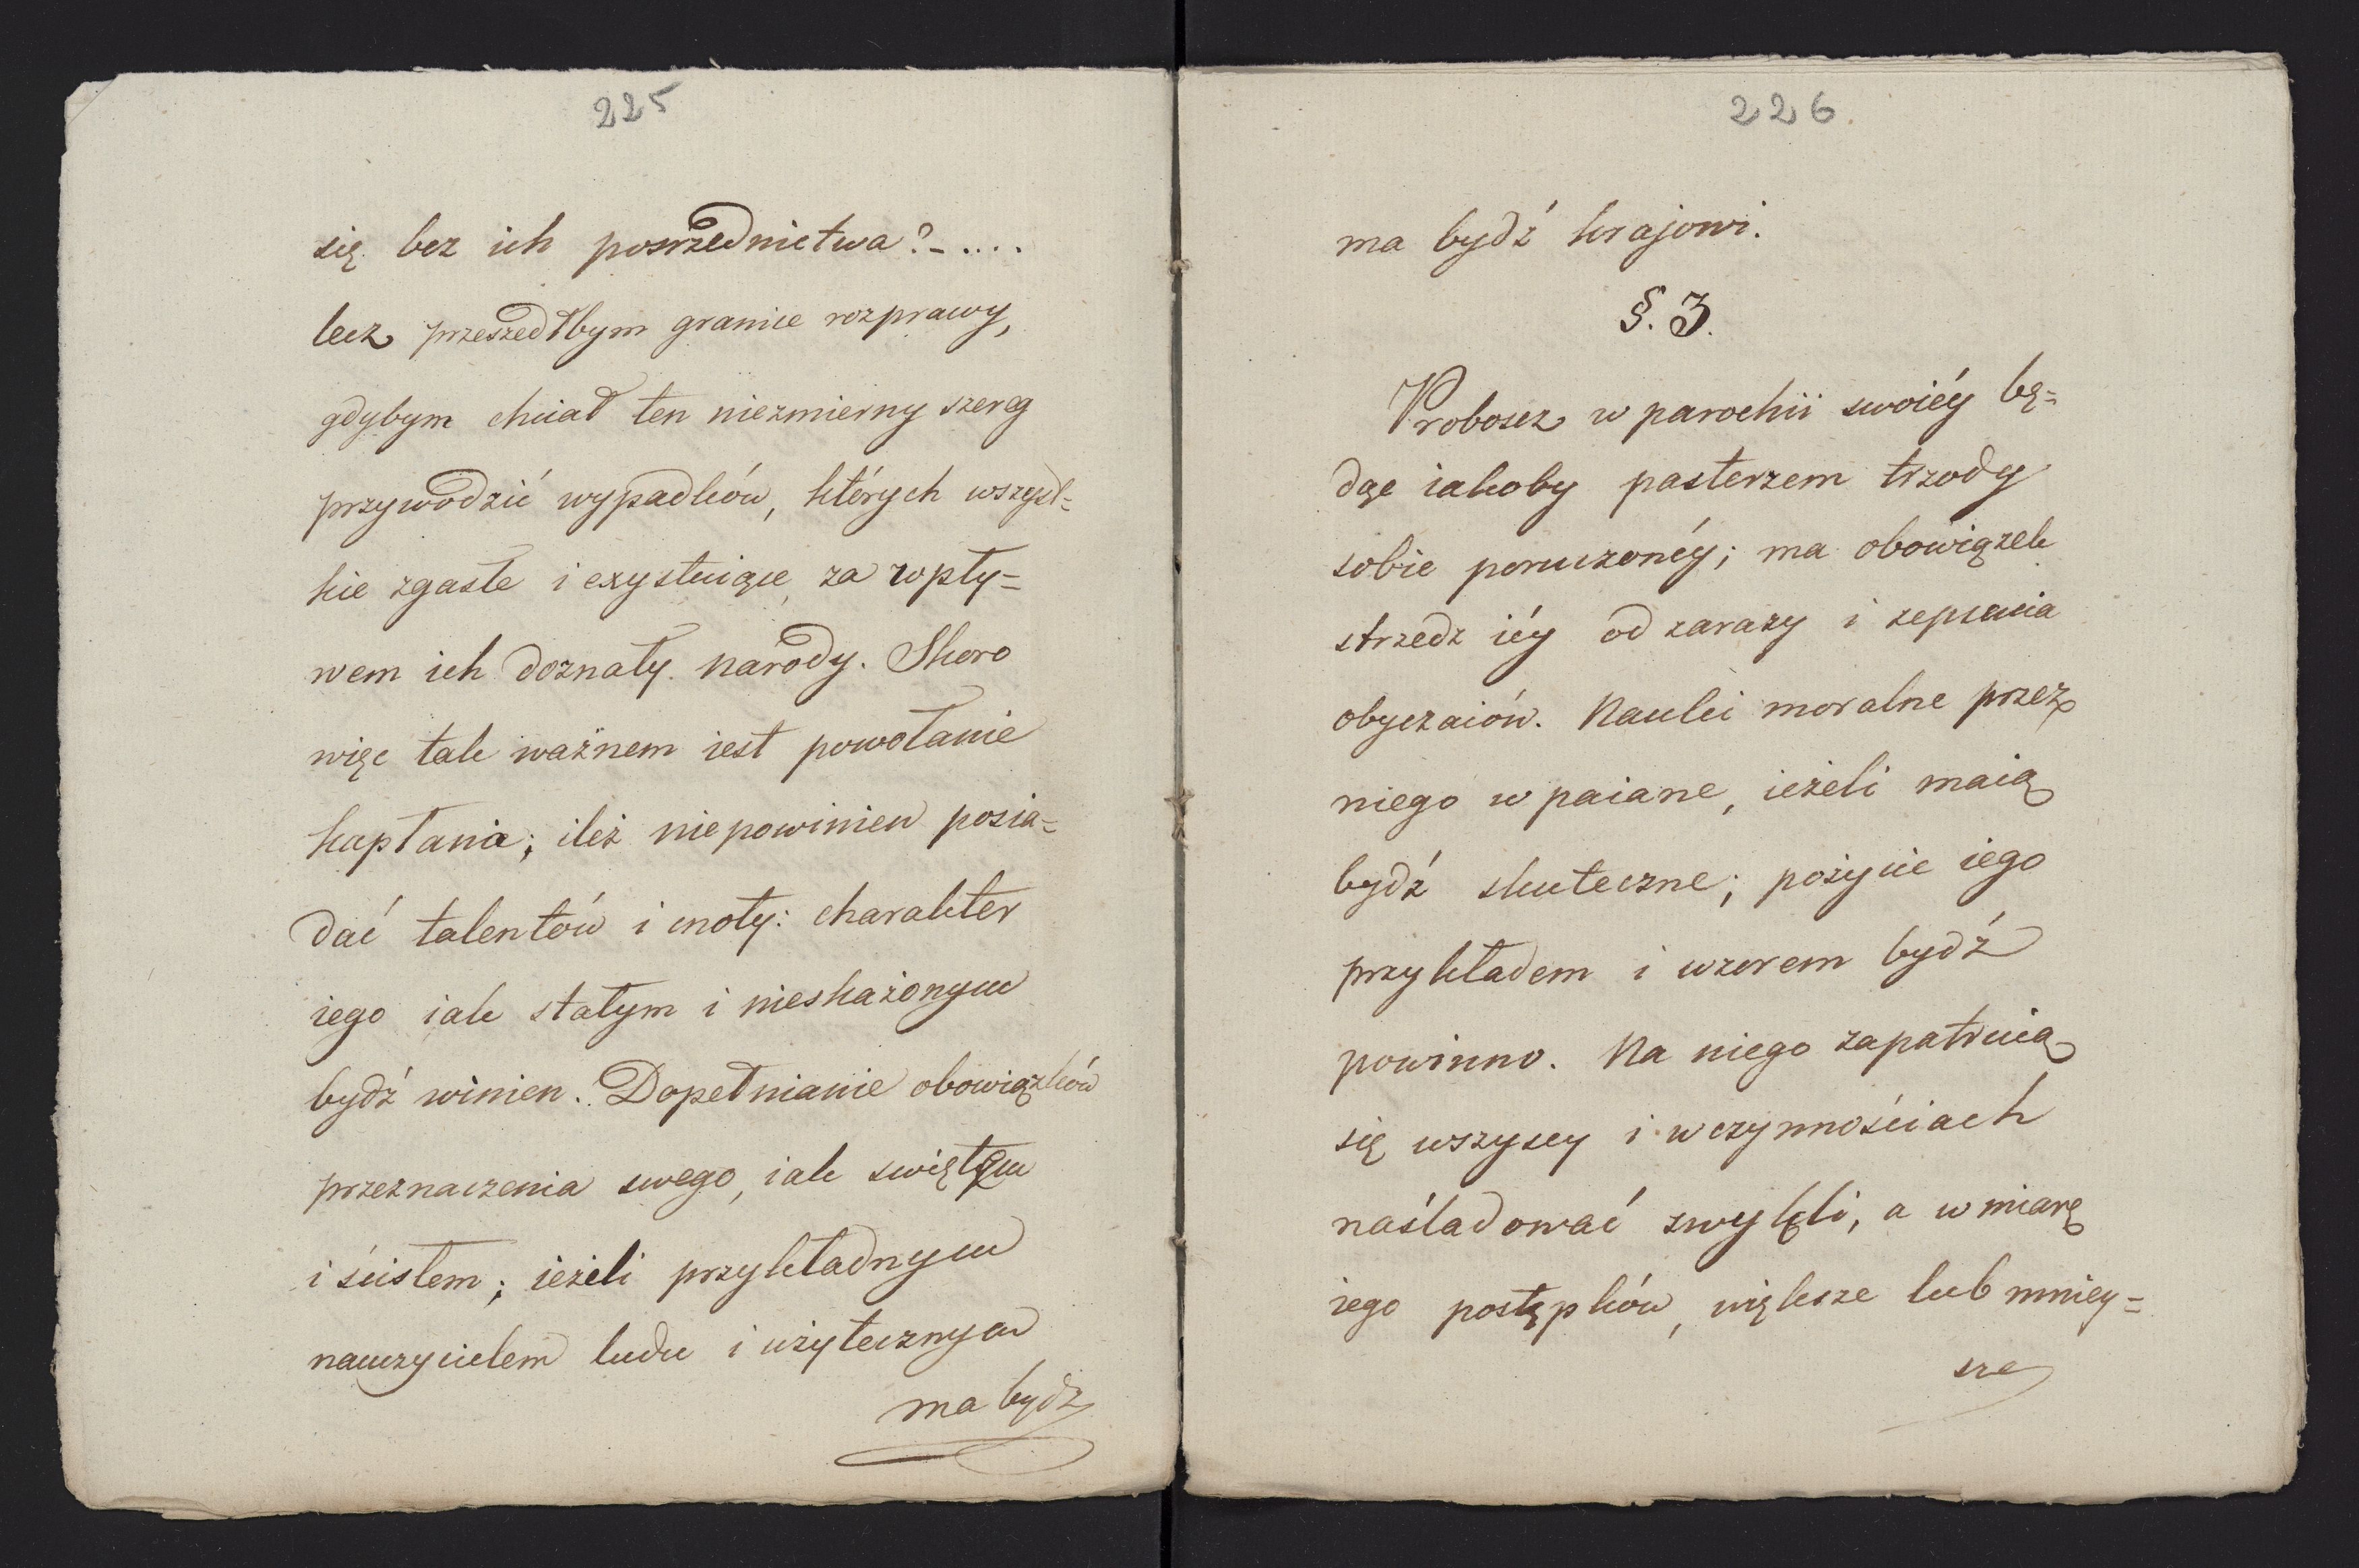 225
się bez ich posrzednictwa?-....
lecz przeszedłbym granice rozprawy,
gdybym chciał ten niezmierny szereg
przywodzić wypadków, których wszyst=
kie zgasłe i exystuiące, za wpły=
wem ich doznały narody. Skoro
więc tak ważnem iest powołanie
kapłana; ileż niepowinien posia=
dać talentów i cnoty: charakter
iego iak stałym i nieskażonym
bydź winien. Dopełnianie obowiązków
przeznaczenia swego, iak swiętem
i ścisłem; ieżeli przykładnym
nauczycielem ludu i użytecznym
ma bydź
226.
ma bydź krajowi.
§. 3.
Proboscz w parochii swoiéy bę=
dąc iakoby pasterzem trzody
sobie poruczonéy; ma obowiązek
strzedz iéy od zarazy i zepsucia
obyczaiów. Nauki moralne przez
niego wpaiane, ieżeli maią
bydź skuteczne; pożycie iego
przykładem i wzorem bydź
powinno. Na niego zapatruią
się wszyscy i w czynnościach
naśladować zwykli, a w miarę
iego postępków, większe lub mniey=
sze